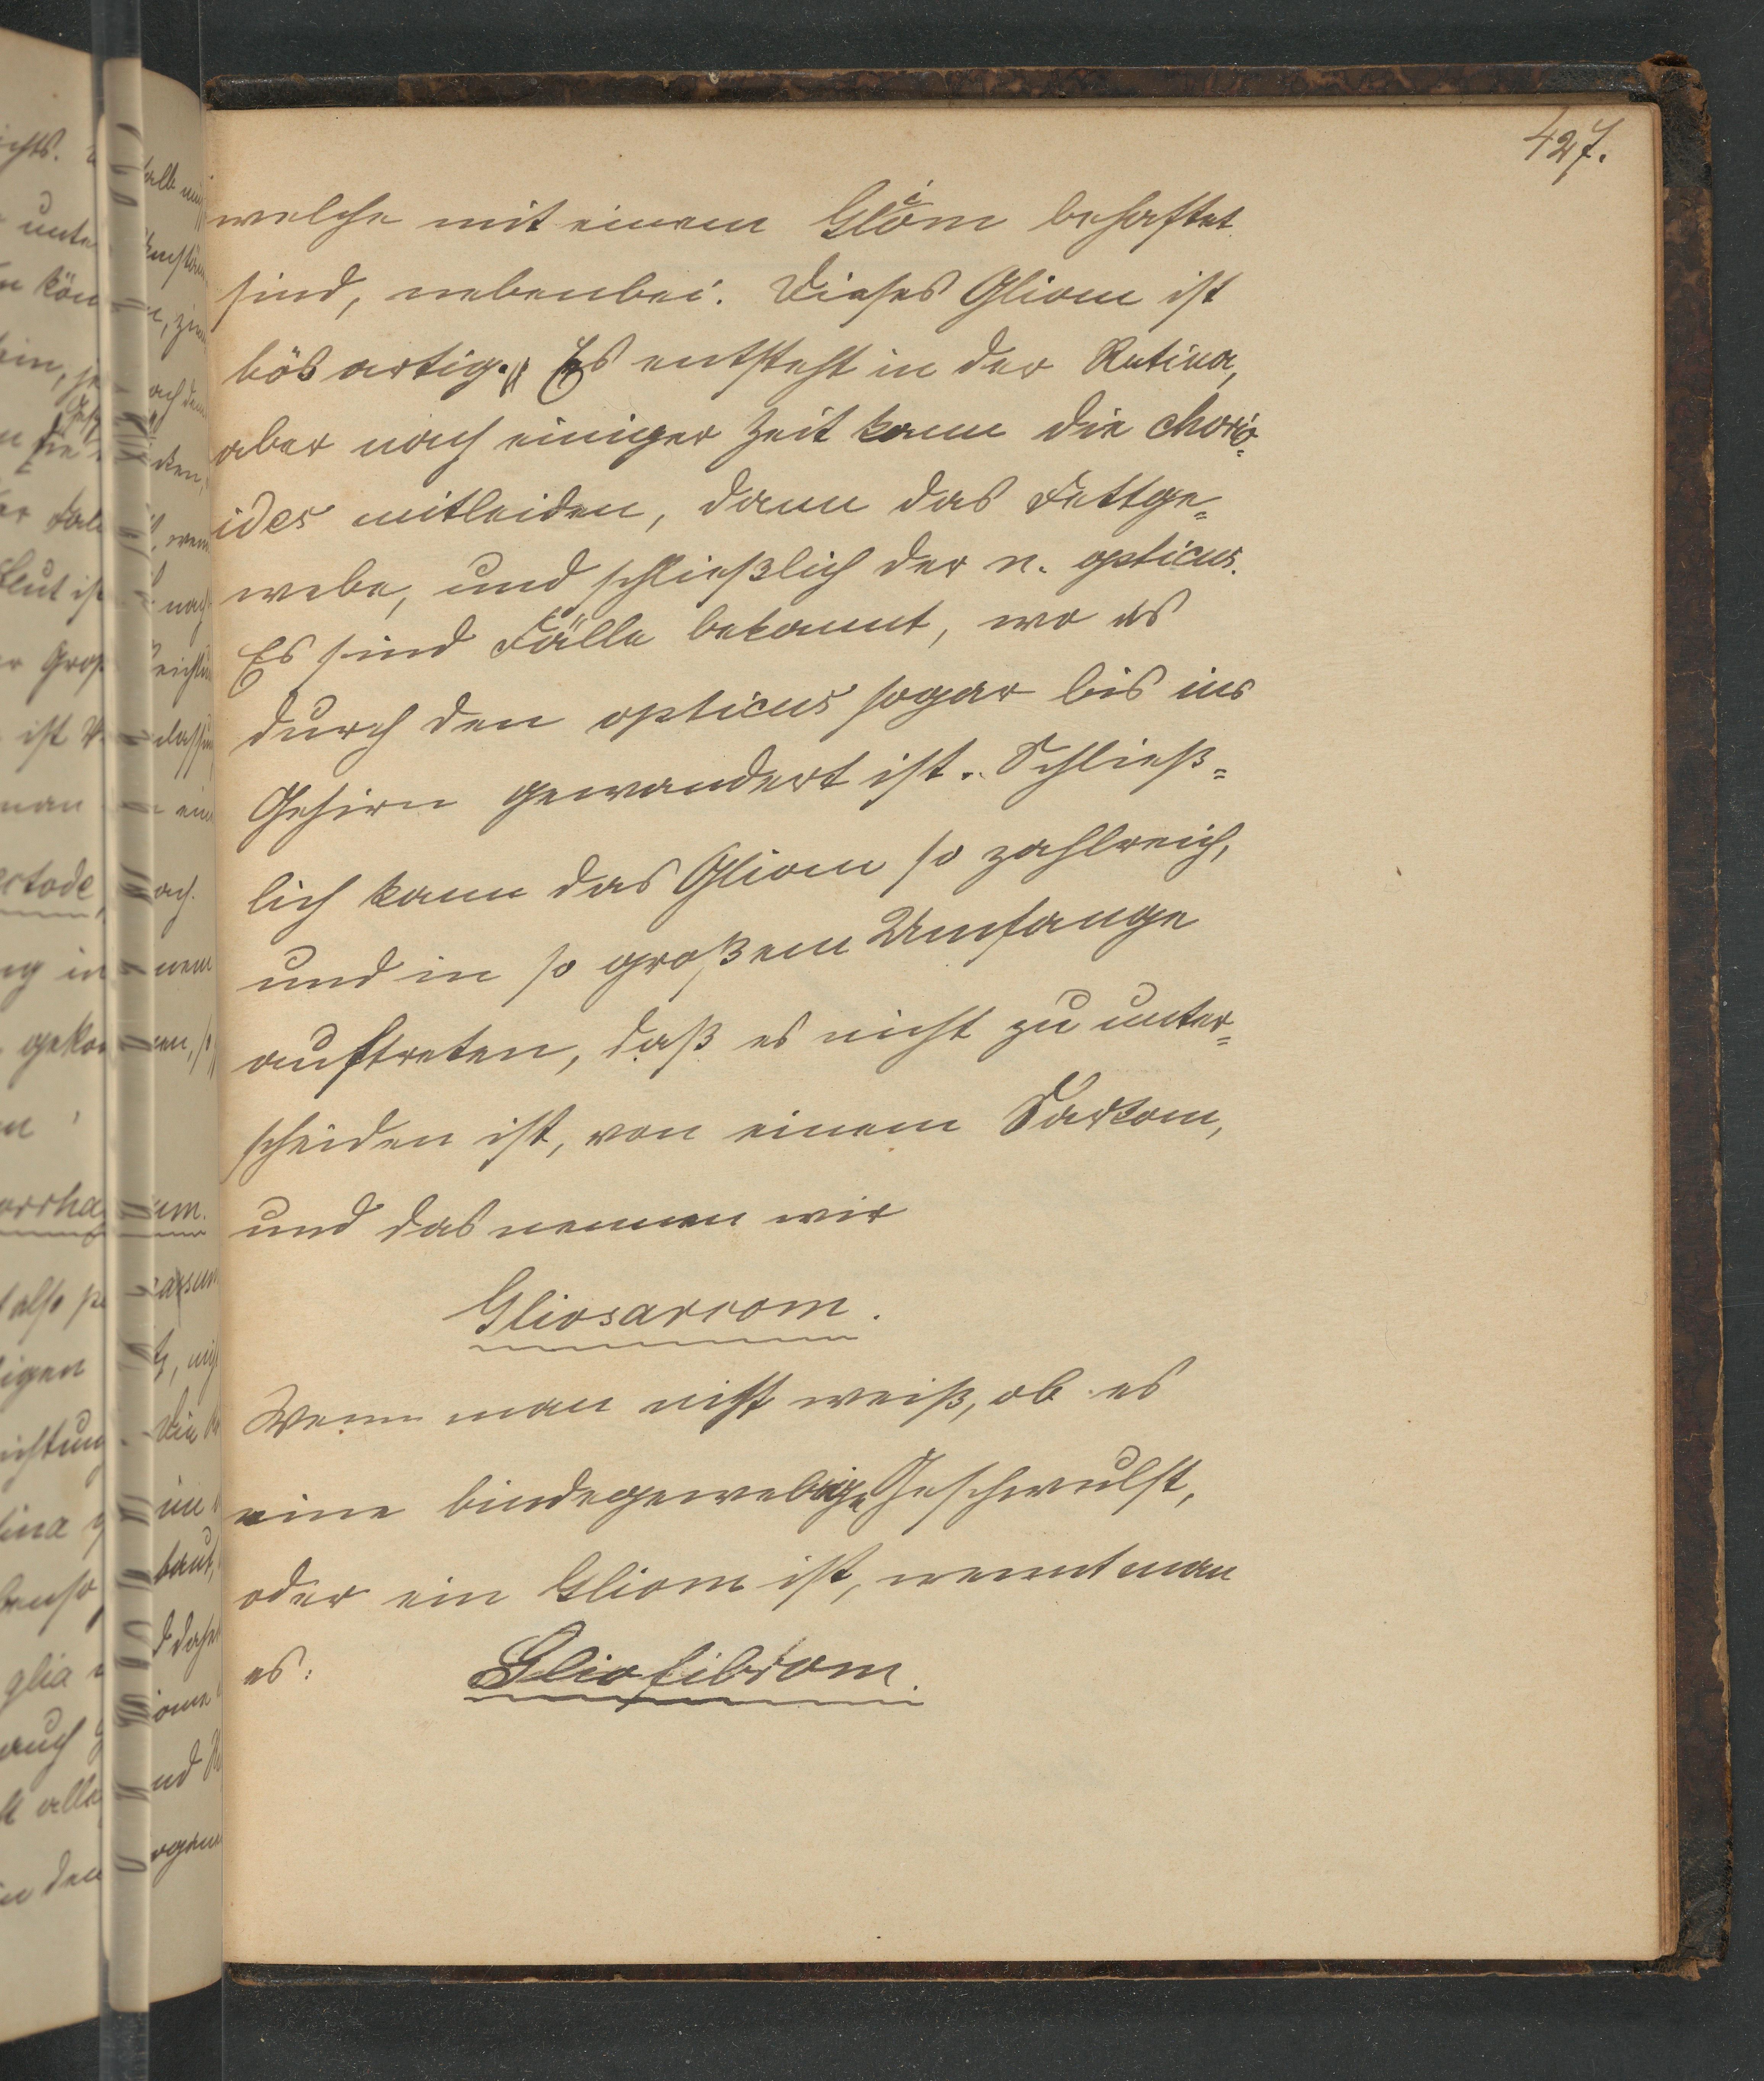 427.
welche mit einem Gliom behaftet
sind, nebenbei. Dieses Gliom ist
bösartig. Es entsteht in der Retina,
aber nach einiger Zeit kann die chorio=
ides mitleiden, dann das Fettge=
webe, und schließlich der n. opticus.
Es sind Fälle bekannt, wo es
durch den opticus sogar bis ins
Gehirn gewandert ist. Schließ=
lich kann das Gliom so zahlreich,
und in so großem Umfange
auftreten, daß es nicht zu unter=
scheiden ist, von einem Sarkom,
und das nennen wir
Gliosarcom.
Wenn man nicht weiß, ob es
eine bindegewebige Geschwulst,
oder ein Gliom ist, nennt man
es: Gliofibrom.